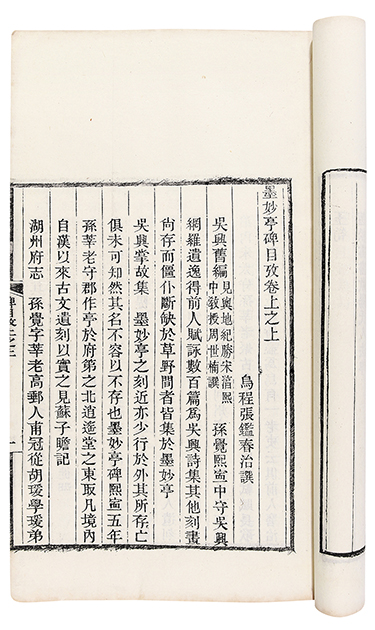 墨妙亭碑目攷卷上之上
烏程張鑑春治譔
吳興舊編見輿地紀勝宋淳熙中教授周世楠譔 孫覺熙寧中守吳興
網羅遺逸得前人賦詠數百篇爲吳興詩集其他刻畫
尙存而僵仆斷缺於草野間者皆集於墨妙亭
吳興掌故集 墨妙亭之刻近亦少行於外其所存亡
俱未可知然其名不容以不存也墨妙亭碑熙寧五年
孫莘老守郡作亭於府第之北逍遙堂之東取凡境內
自漢以來古文遺刻以實之見蘇子瞻記
湖州府志 孫覺字莘老高郵人甫冠從胡瑗學瑗弟